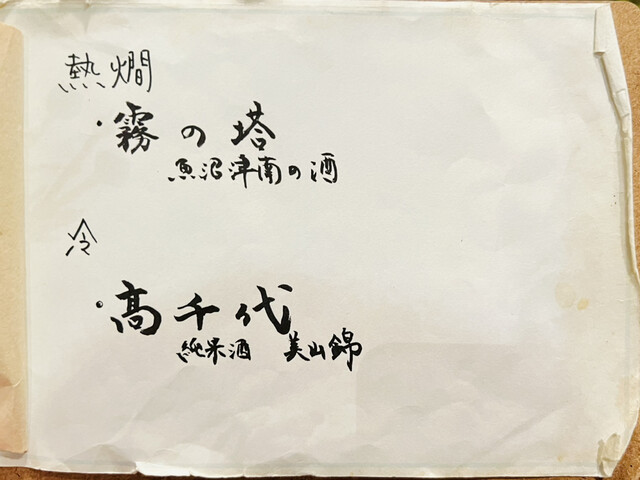 熱燗
・霧の塔
魚沼津南の酒
冷
・高千代
純米酒 美山錦